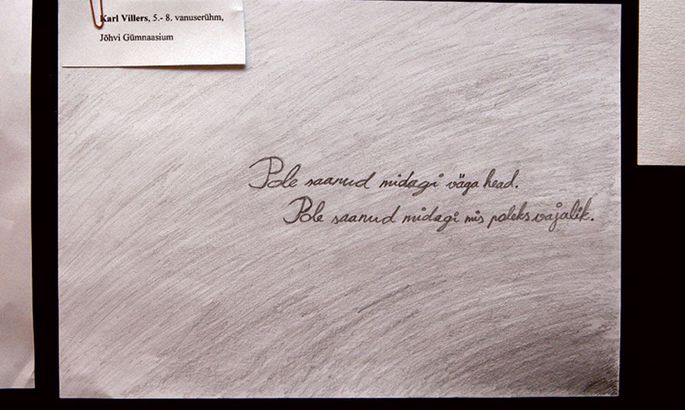 Karl Villers, 5.- 8. vanuserühm,
Jõhvi Gümnaasium
Pole saanud midagi väga head.
Pole saanud midagi mis poleks vajalik.